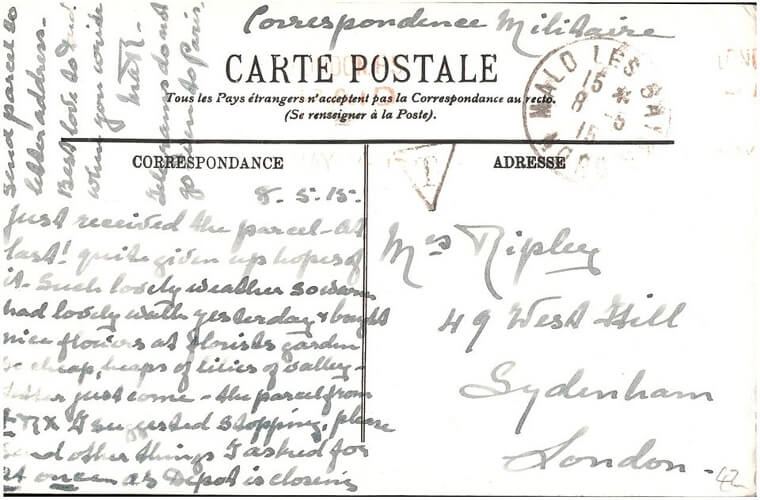 Correspondence Militaire
CARTE POSTALE
Tous les Pays étrangers n'acceptent pas la Correspondance au recto.
(Se renseigner à la Poste).
CORRESPONDANCE
8.5.15.
Just received the parcel - At
last! quite given up hopes of
it. Such lovely weather so warm
had lovely walk yesterday & bought
nice flowers at florists garden
so cheap, heaps of lilies of valley -
just come - the parcel from
I suggested stopping, please
send other things I asked for
at once as Depot is closing
send parcel to
letter address.
Best love to Dad.
when you write
telegrams do not
go to Paris.
ADRESSE
Mrs Ripley
49 West Hill
Sydenham
London -
MALO LES BA
15 *
8 - 5
15
T